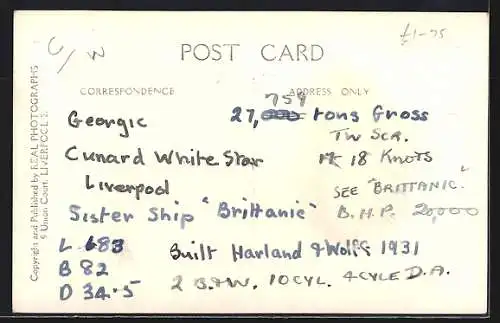 C/W
£1-75
POST CARD
CORRESPONDENCE
ADDRESS ONLY
Copyright and Published by REAL PHOTOGRAPHS
9 Union Court, LIVERPOOL 2.
759
Georgic 27, tons Gross
Tw Scr.
Cunard White Star 18 Knots
Liverpool SEE "BRITTANIC."
Sister Ship "Brittanic" B.H.P. 20,000
L 683 Built Harland & Wolff 1931
B 82 2 B.&W. 10 CYL. 4 CYLE D.A.
D 34.5